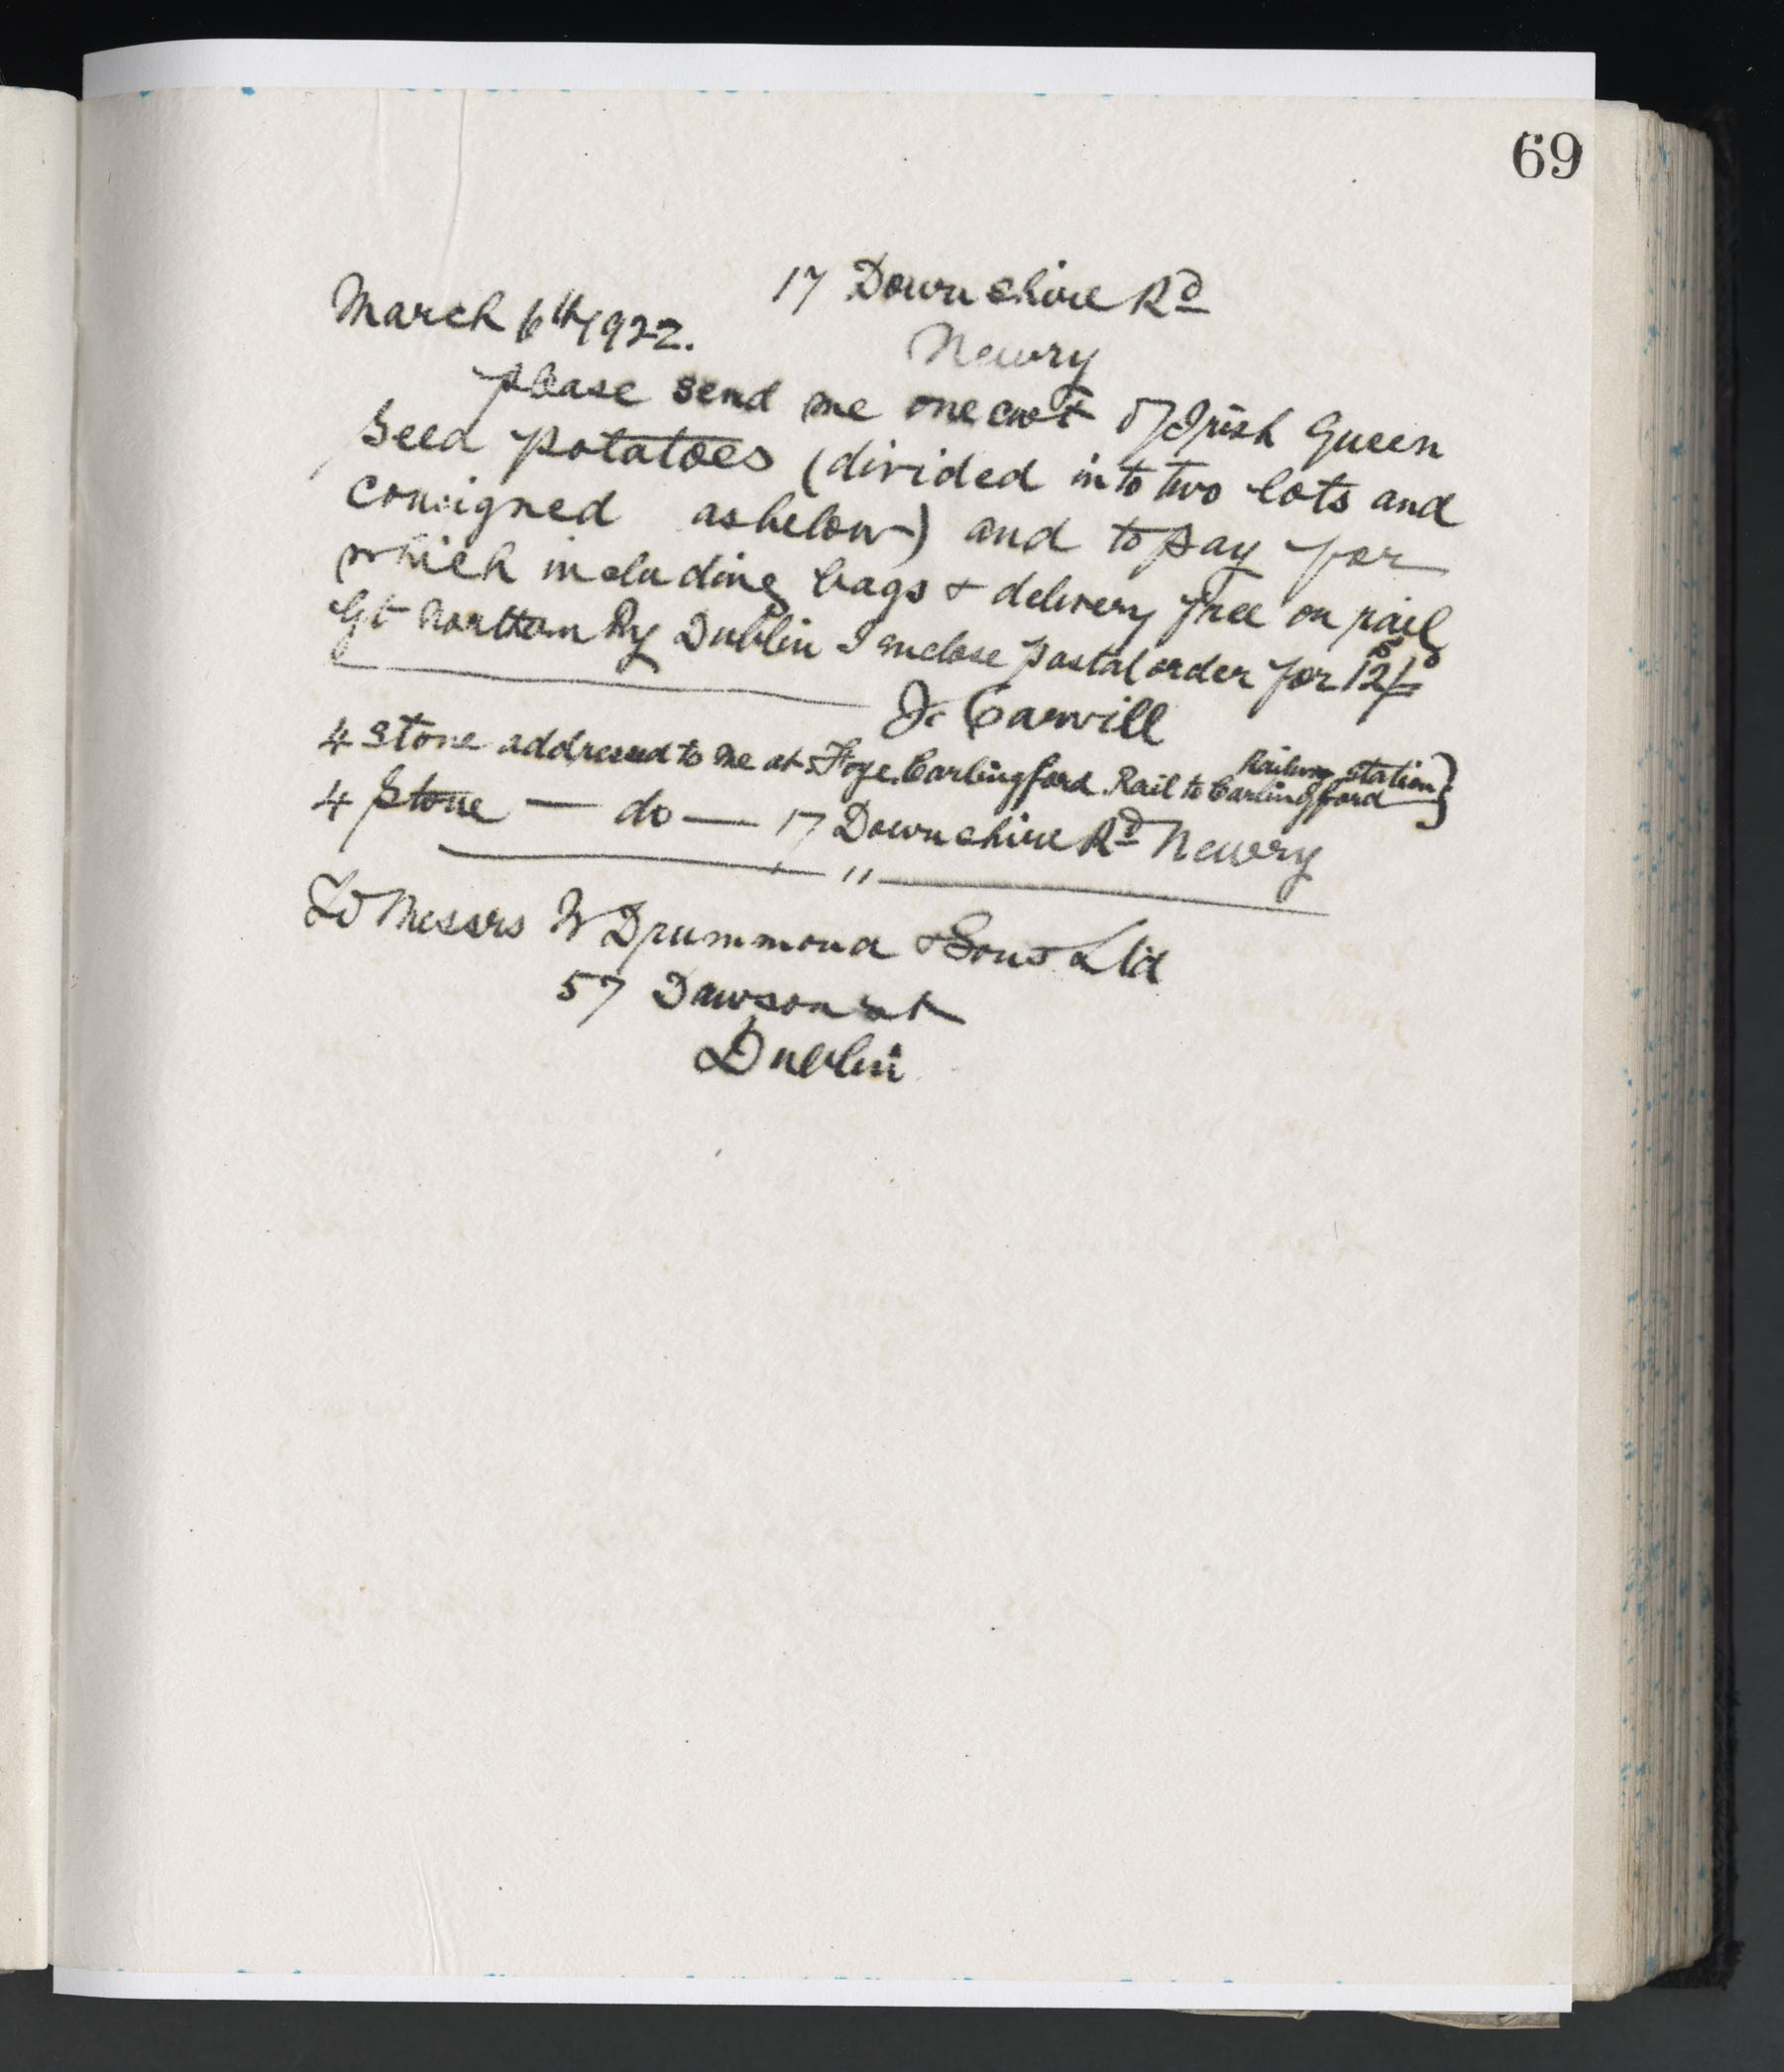 69
17 Downshire Rd
March 6th 1922.
Newry
Please send me one cwt of Irish Queen
Seed potatoes (divided into two lots and
consigned as below) and to pay for
which including bags & delivery free on rail
Gt Northern Ry Dublin I enclose postal order for 12/-
J. Carvill
4 Stone addressed to me at Foye. Carlingford. Rail to Carlingford Railway Station}
4 Stone — do — 17 Downshire Rd Newry
— " —
To Messrs W Drummond & Sons Ltd
57 Dawson st
Dublin